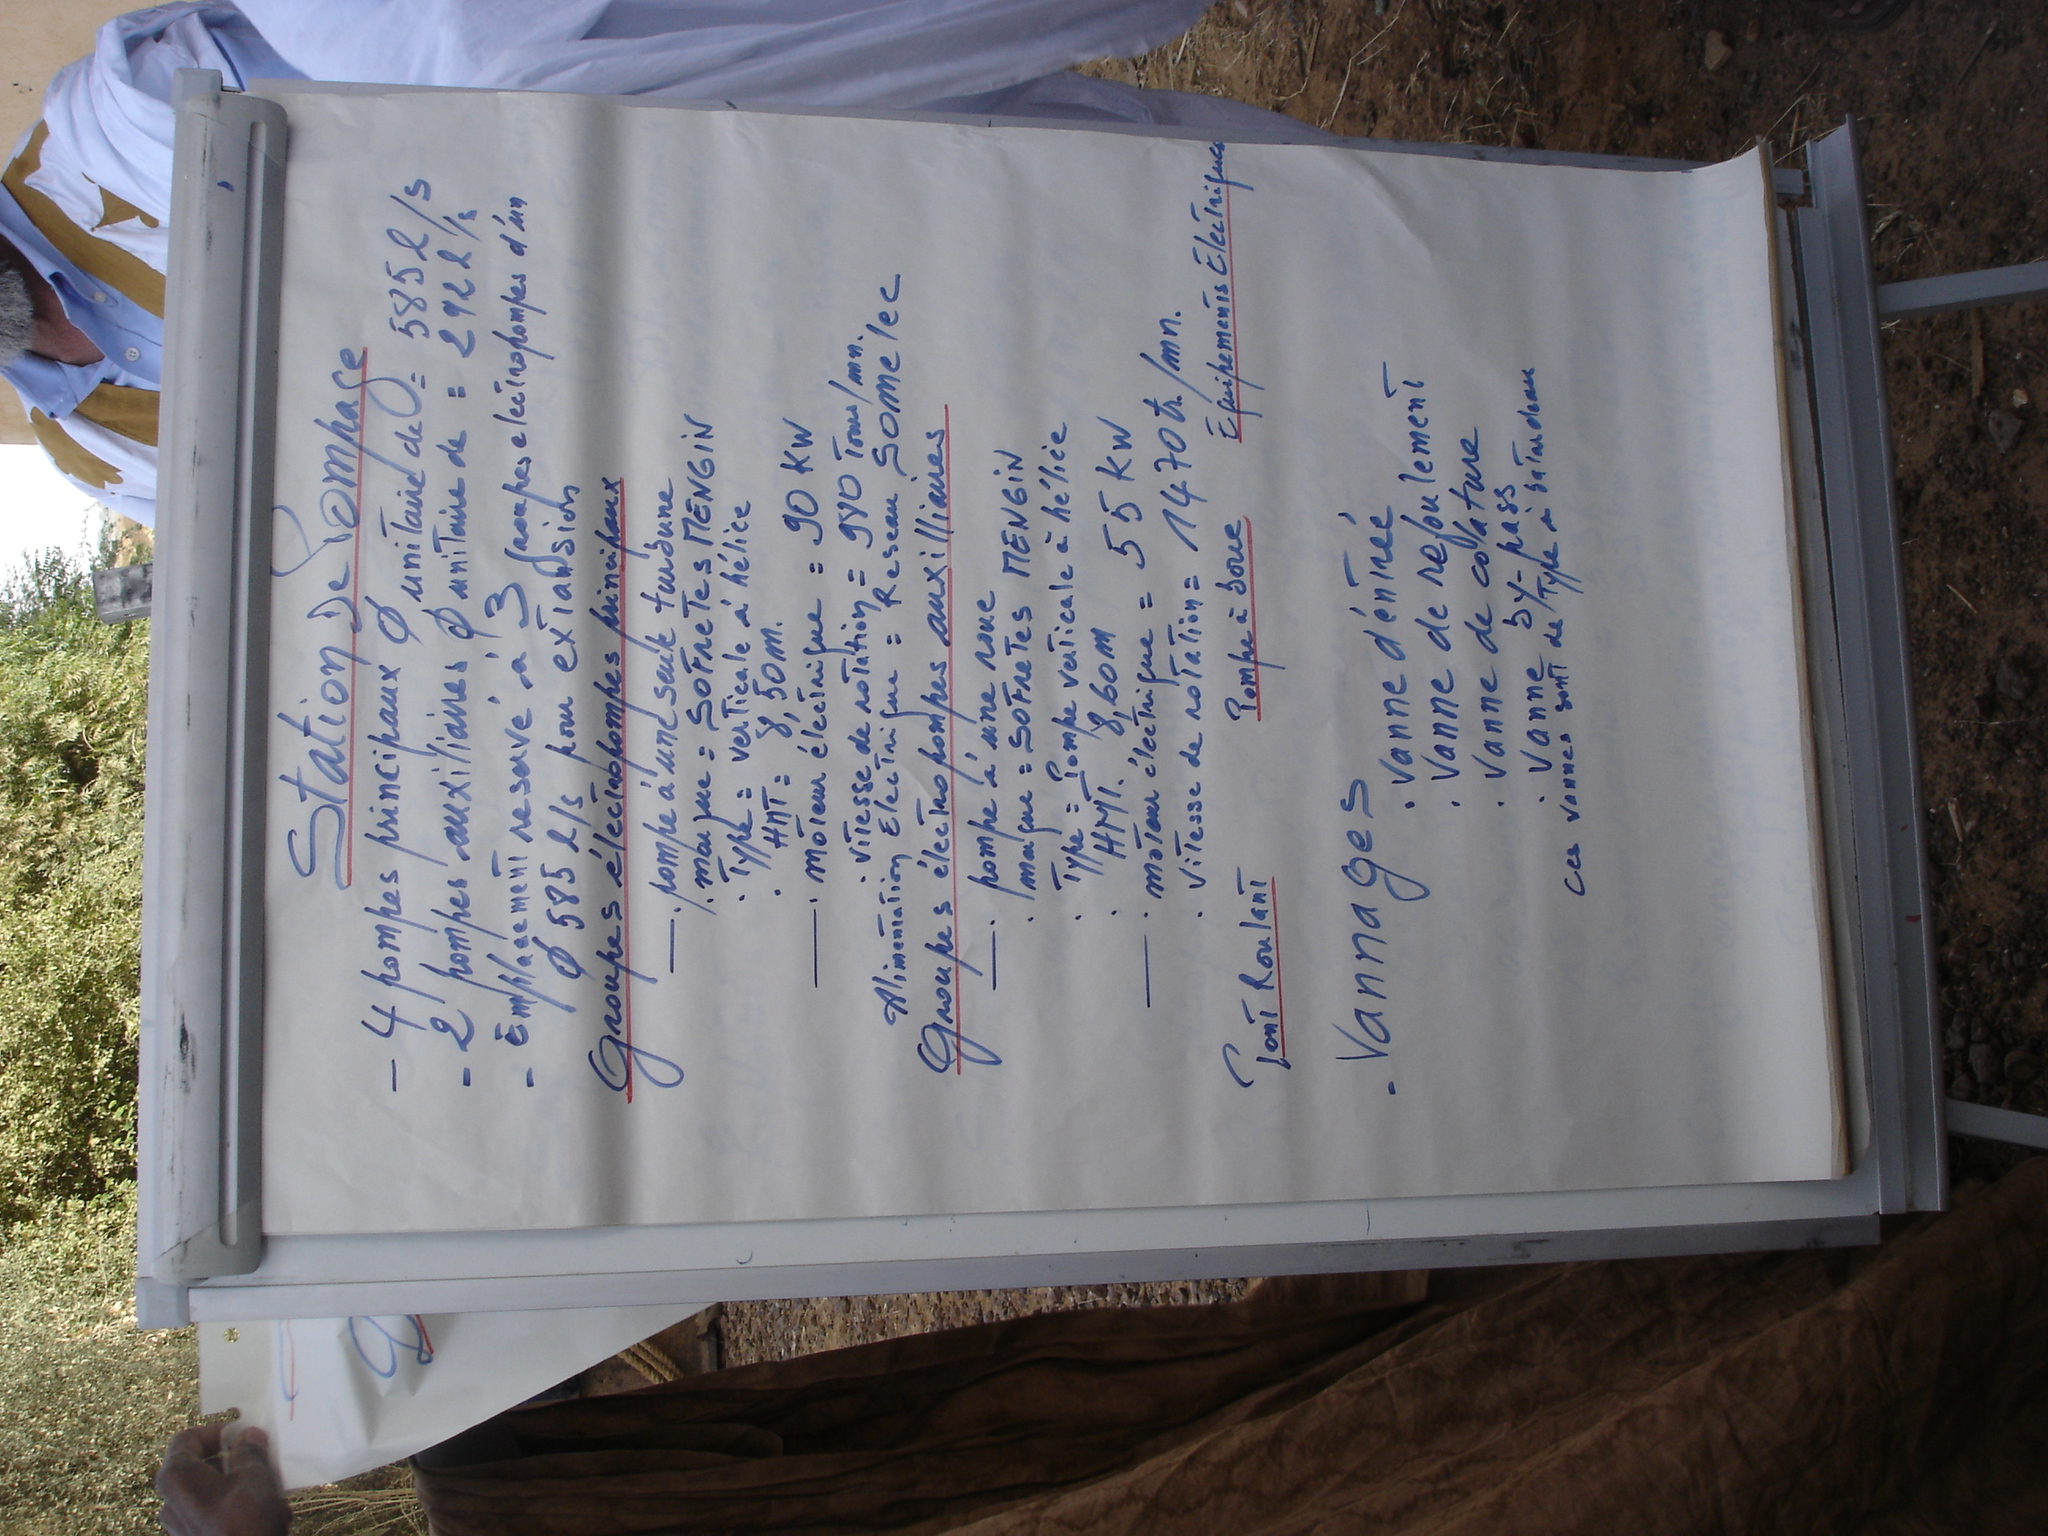 Station De Pompage
- 4 pompes principaux φ unitaire de = 585 l/s
- 2 pompes auxiliaires φ unitaire de = 292 l/s
- Emplacement reservé à 3 groupes electropompes d'un
φ 585 l/s pour extansion
Groupes électropompes principaux
— . pompe à une seule turbune
. marque = SOFRETES MENGIN
. Type = verticale à hélice
. HMT = 8,50m.
— . moteur électrique = 90 KW
. vitesse de rotation = 980 Tours/mn.
Alimentation Electrique = Reseau SOMELEC
Groupes électropompes auxilliaires
— . pompe à une roue
. marque = SOFRETES MENGIN
. Type = Pompe verticale à hélice
. HMT. 8,60m
— . moteur électrique = 55 KW
. vitesse de rotation = 1470 tr./mn.
Pont Roulant Pompe à boue Equipements Electriques
- Vannages
. Vanne d'entrée
. Vanne de refoulement
. Vanne de colature
. Vanne by-pass
Ces vannes sont de Type à batardeau